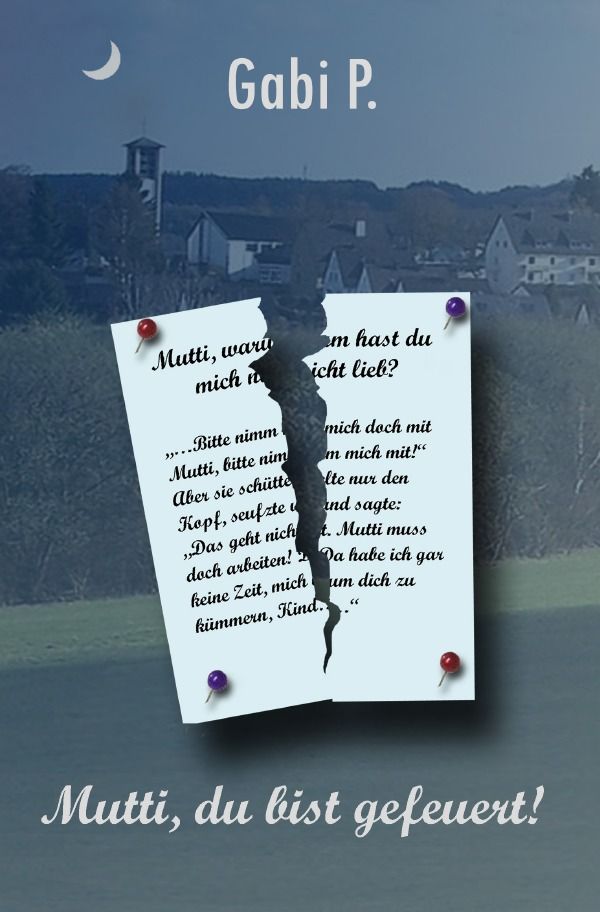 Gabi P.
Mutti, waru m hast du
mich n icht lieb?
„…Bitte nimm mich doch mit
Mutti, bitte nim m mich mit!“
Aber sie schütte lte nur den
Kopf, seufzte und sagte:
„Das geht nich t. Mutti muss
doch arbeiten! Da habe ich gar
keine Zeit, mich um dich zu
kümmern, Kind…..“
Mutti, du bist gefeuert!